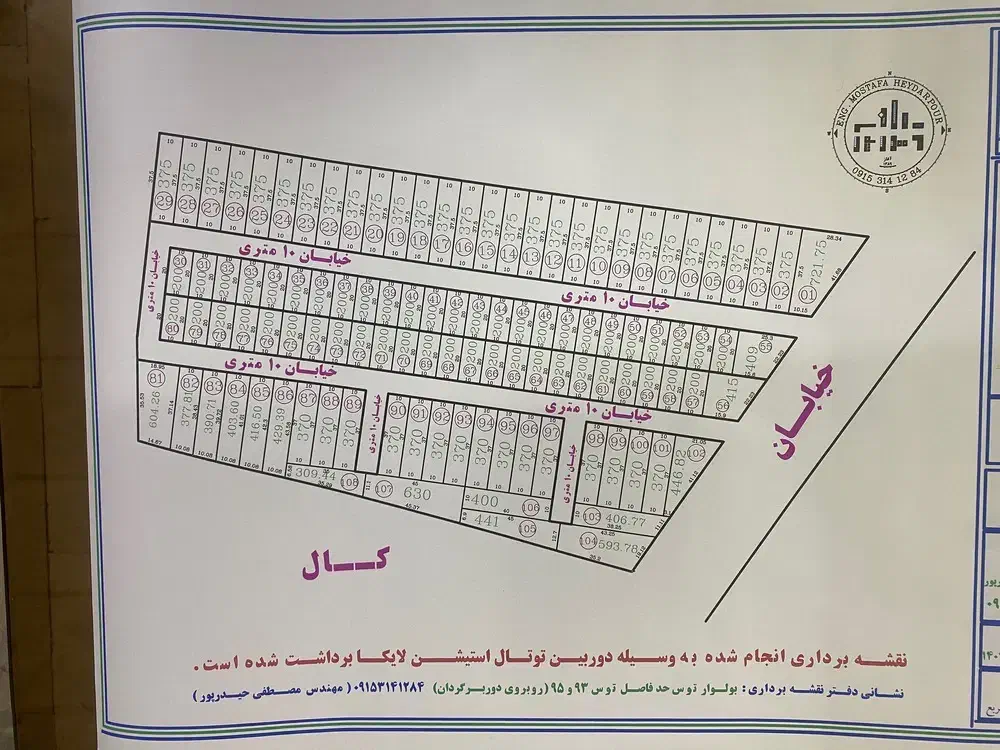 ENG. MOSTAFA HEYDARPOUR
0915 314 12 84
N
S
10 10 10 10 10 10 10 10 10 10 10 10 10 10 10 10 10 10 10 10 10 10 10 10 10 10 10 10 28.34
37.5 375 375 375 375 375 375 375 375 375 375 375 375 375 375 375 375 375 375 375 375 375 375 375 375 375 375 375 375 721.75 41.69
29 28 27 26 25 24 23 22 21 20 19 18 17 16 15 14 13 12 11 10 09 08 07 06 05 04 03 02 01
10.15
خیابان ۱۰ متری
خیابان ۱۰ متری
خیابان ۱۰ متری
30 31 32 33 34 35 36 37 38 39 40 41 42 43 44 45 46 47 48 49 50 51 52 53 54 55
200 200 200 200 200 200 200 200 200 200 200 200 200 200 200 200 200 200 200 200 200 200 200 200 200 409
200 200 200 200 200 200 200 200 200 200 200 200 200 200 200 200 200 200 200 200 200 200 200 200 415
80 79 78 77 76 75 74 73 72 71 70 69 68 67 66 65 64 63 62 61 60 59 58 57 56
خیابان ۱۰ متری
خیابان ۱۰ متری
خیابان
18.95
81 82 83 84 85 86 87 88 89
604.26 377.81 390.71 403.60 416.50 429.39 370 370 370
14.67 10.08 10.08 10.08 10.08 10.08
خیابان ۱۰ متری
90 91 92 93 94 95 96 97
370 370 370 370 370 370 370 370
خیابان ۱۰ متری
21.05
98 99 100 101 102
370 370 370 370 446.82
309.44 108
107 630
45.37
400 106
441 105
103 406.77
38.25
43.25
104 593.78
کـــال
نقشه برداری انجام شده به وسیله دوربین توتال استیشن لایکا برداشت شده است .
نشانی دفتر نقشه برداری : بولوار توس حد فاصل توس ۹۳ و ۹۵ (روبروی دوربرگردان) ۰۹۱۵۳۱۴۱۲۸۴ ( مهندس مصطفی حیدرپور )